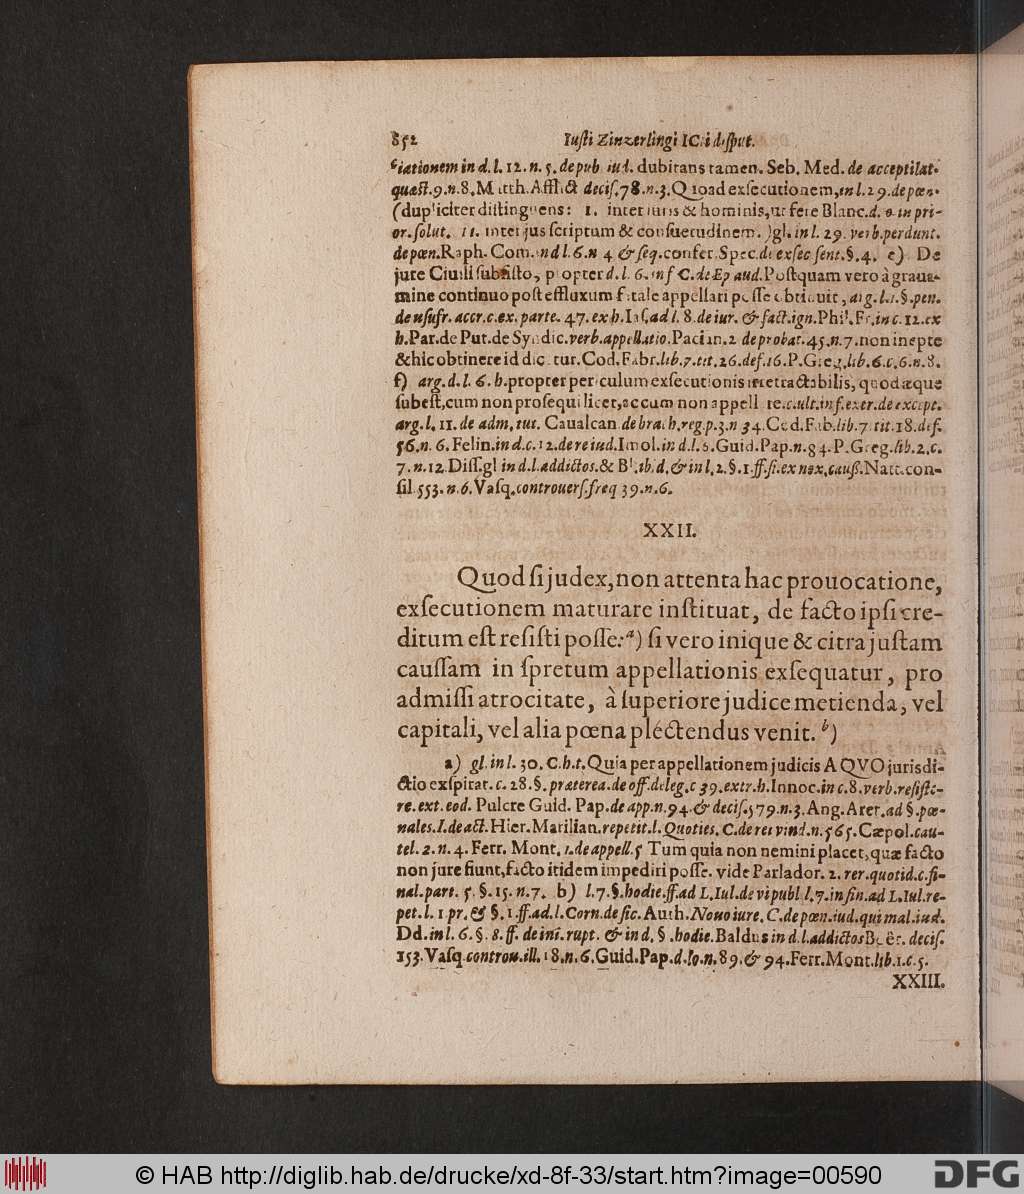 852 Iuſti Zinzerlingi ICti diſput.
ciationem in d. l. 12. n. 5. de pub. iud. dubitans tamen. Seb. Med. de acceptilat.
quæst. 9. n. 8. Matth. Afflict. deciſ. 78. n. 3. Quoad exſecutionem, in l. 29. de pœn.
(dupliciter diſtinguens: 1. inter iuris & hominis, ut fere Blanc. d. in pri-
or. ſolut. 11. inter jus ſcriptum & conſuetudinem.) gl. in l. 29. verb. perdunt.
de pœn. Raph. Com. in d l. 6. n 4 & ſeq. confer. Spec. de exſec ſent. §. 4. e) De
jure Civili ſubſiſto, propter d. l. 6. inf C. de Ep aud. Poſtquam vero à grava-
mine continuo poſt effluxum fatale appellari poſſe obtinuit, arg. l. 1. §. pen.
de uſufr. accr. c. ex. parte. 47. ex h. Iaſ. ad l. 8. de iur. & fact. ign. Phil. Fr. in c. 12. ex
h. Par. de Put. de Syndic. verb. appellatio. Pacian. 2 de probat. 45. n. 7. non inepte
& hic obtinere id dicetur. Cod. Fabr. lib. 7. tit. 26. def. 16. P. Greg. lib. 6. c. 6. n. 8.
f) arg. d. l. 6. h. propter periculum exſecutionis irretractabilis, quod æque
ſubeſt, cum non proſequi licet, ac cum non appellare. c. ult. inf. exer. de except.
arg. l. 11. de adm. tut. Cavalcan. de brach. reg. p. 3. n 34. Cod. Fab. lib. 7. tit. 18. def.
56. n. 6. Felin. in d. c. 12. de re iud. Imol. in d. l. 6. Guid. Pap. n. 94. P. Greg. lib. 2. c.
7. n. 12. Diſſ. gl in d. l. addictos. & Bl. ibid. & in l. 2. §. 1. ff. ſi. ex nox. cauſ. Natt. con-
ſil. 553. n. 6. Vaſq. controuerſ. freq 39. n. 6.
XXII.
Quod ſi judex, non attenta hac prouocatione,
exſecutionem maturare inſtituat, de facto ipſi cre-
ditum eſt reſiſti poſſe: a) ſi vero inique & citra juſtam
cauſſam in ſpretum appellationis exſequatur, pro
admiſſi atrocitate, à ſuperiore judice metienda, vel
capitali, vel alia pœna pléctendus venit. b)
a) gl. in l. 30. C. h. t. Quia per appellationem judicis A QVO jurisdi-
ctio exſpirat. c. 28. §. præterea. de off. deleg. c 39. extr. h. Innoc. in c. 8. verb. reſiſte-
re. ext. eod. Pulcre Guid. Pap. de app. n. 94. & deciſ. 579. n. 3. Ang. Aret. ad §. pœ-
nales. I. de act. Hier. Marilian. repetit. l. Quoties. C. de rei vind. n. 565. Cæpol. cau-
tel. 2. n. 4. Ferr. Mont. 1. de appell. 5 Tum quia non nemini placet, quæ facto
non jure fiunt, facto itidem impediri poſſe. vide Parlador. 2. rer. quotid. c. fi-
nal. part. 5. §. 15. n. 7. b) l. 7. §. hodie. ff. ad L. Iul. de vi publ l. 7. in fin. ad L. Iul. re-
pet. l. 1 pr. & §. 1. ff. ad. l. Corn. de ſic. Auth. Novo iure. C. de pœn. iud. qui mal. iud.
Dd. in l. 6. §. 8. ff. de ini. rupt. & in d. § . hodie. Baldus in d. l. addictos Boër. deciſ.
153. Vaſq. controu. ill. 18. n. 6. Guid. Pap. d. lo. n. 89. & 94. Ferr. Mont. lib. 1. c. 5.
XXIII.
© HAB http://diglib.hab.de/drucke/xd-8f-33/start.htm?image=00590
DFG